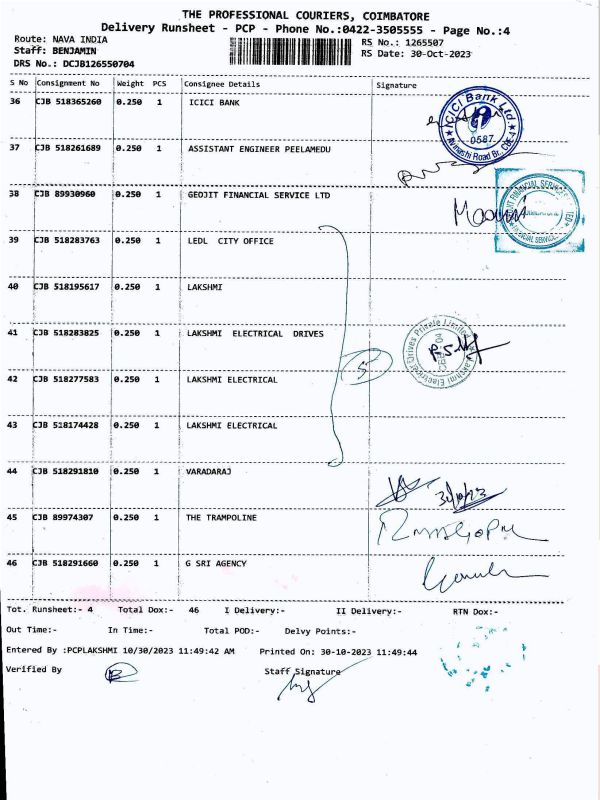 THE PROFESSIONAL COURIERS, COIMBATORE
Delivery Runsheet - PCP - Phone No.:0422-3505555 - Page No.:4
Route: NAVA INDIA
RS No.: 1265507
Staff: BENJAMIN
RS Date: 30-Oct-2023
DRS No.: DCJB126550704
S No Consignment No Weight PCS Consignee Details Signature
36 CJB 518365260 0.250 1 ICICI BANK
ICICI Bank Ltd.
0587
Avinashi Road Br., CBE-4
37 CJB 518261689 0.250 1 ASSISTANT ENGINEER PEELAMEDU
38 CJB 89930960 0.250 1 GEOJIT FINANCIAL SERVICE LTD
39 CJB 518283763 0.250 1 LEDL CITY OFFICE
40 CJB 518195617 0.250 1 LAKSHMI
41 CJB 518283825 0.250 1 LAKSHMI ELECTRICAL DRIVES
Lakshmi Electrical Drives Private Limited
5
42 CJB 518277583 0.250 1 LAKSHMI ELECTRICAL
43 CJB 518174428 0.250 1 LAKSHMI ELECTRICAL
44 CJB 518291810 0.250 1 VARADARAJ
30/10/23
45 CJB 89974307 0.250 1 THE TRAMPOLINE
46 CJB 518291660 0.250 1 G SRI AGENCY
Tot. Runsheet:- 4 Total Dox:- 46 I Delivery:- II Delivery:- RTN Dox:-
Out Time:- In Time:- Total POD:- Delvy Points:-
Entered By :PCPLAKSHMI 10/30/2023 11:49:42 AM Printed On: 30-10-2023 11:49:44
Verified By Staff Signature